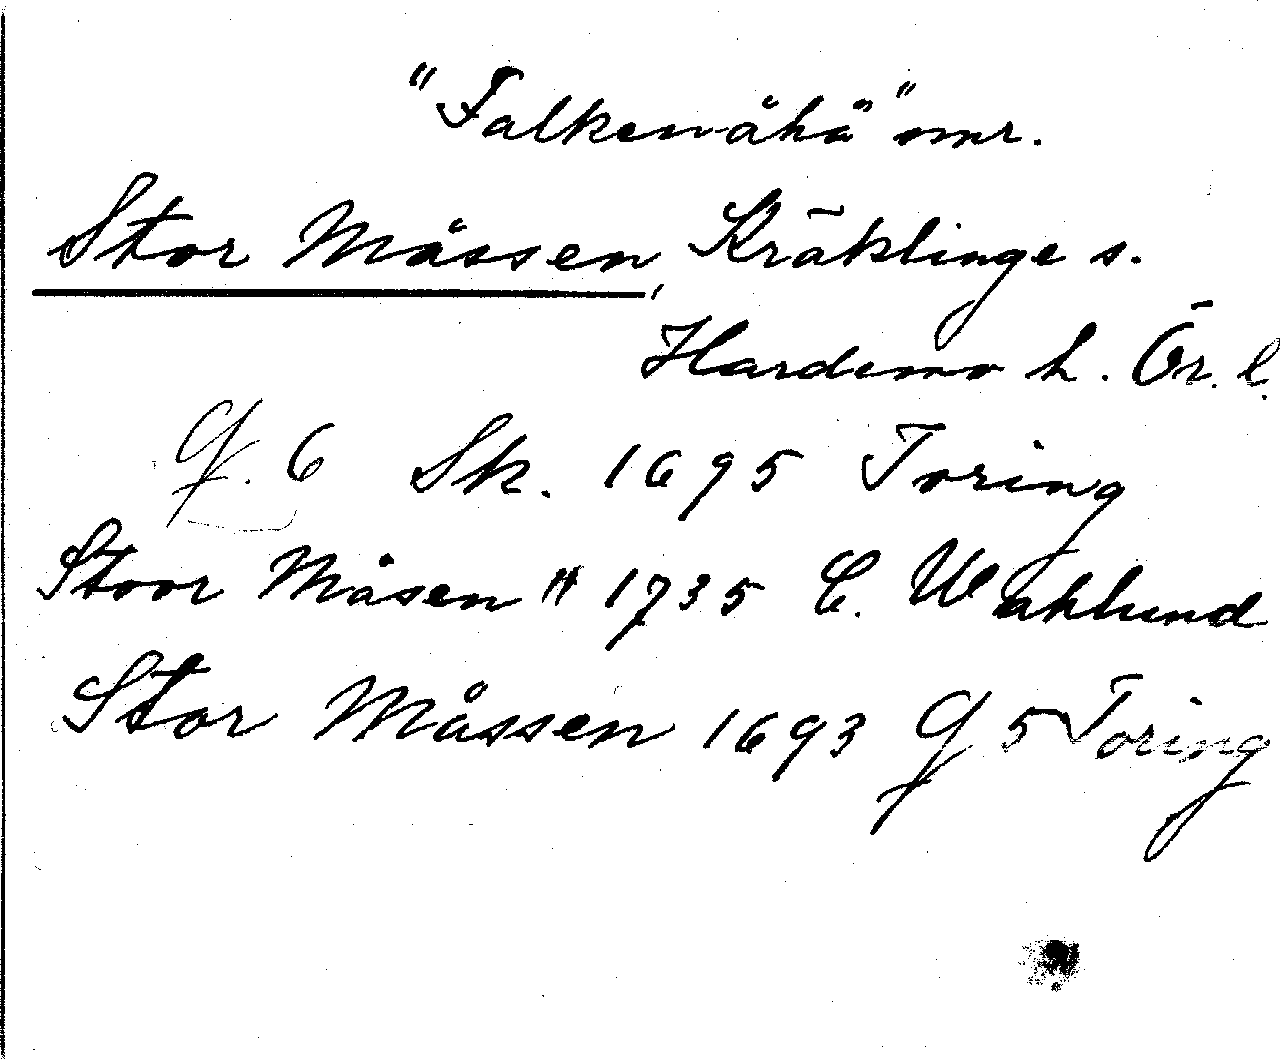 "Falkenåhä" omr.
Stor Mässen, Kräklinge s.
Hardemo h. Ör. l.
G. 6 Sk. 1695 Toring
Stoor Måsen " 1735 C. Wahlund
Stor Måssen 1693 G 5 Toring